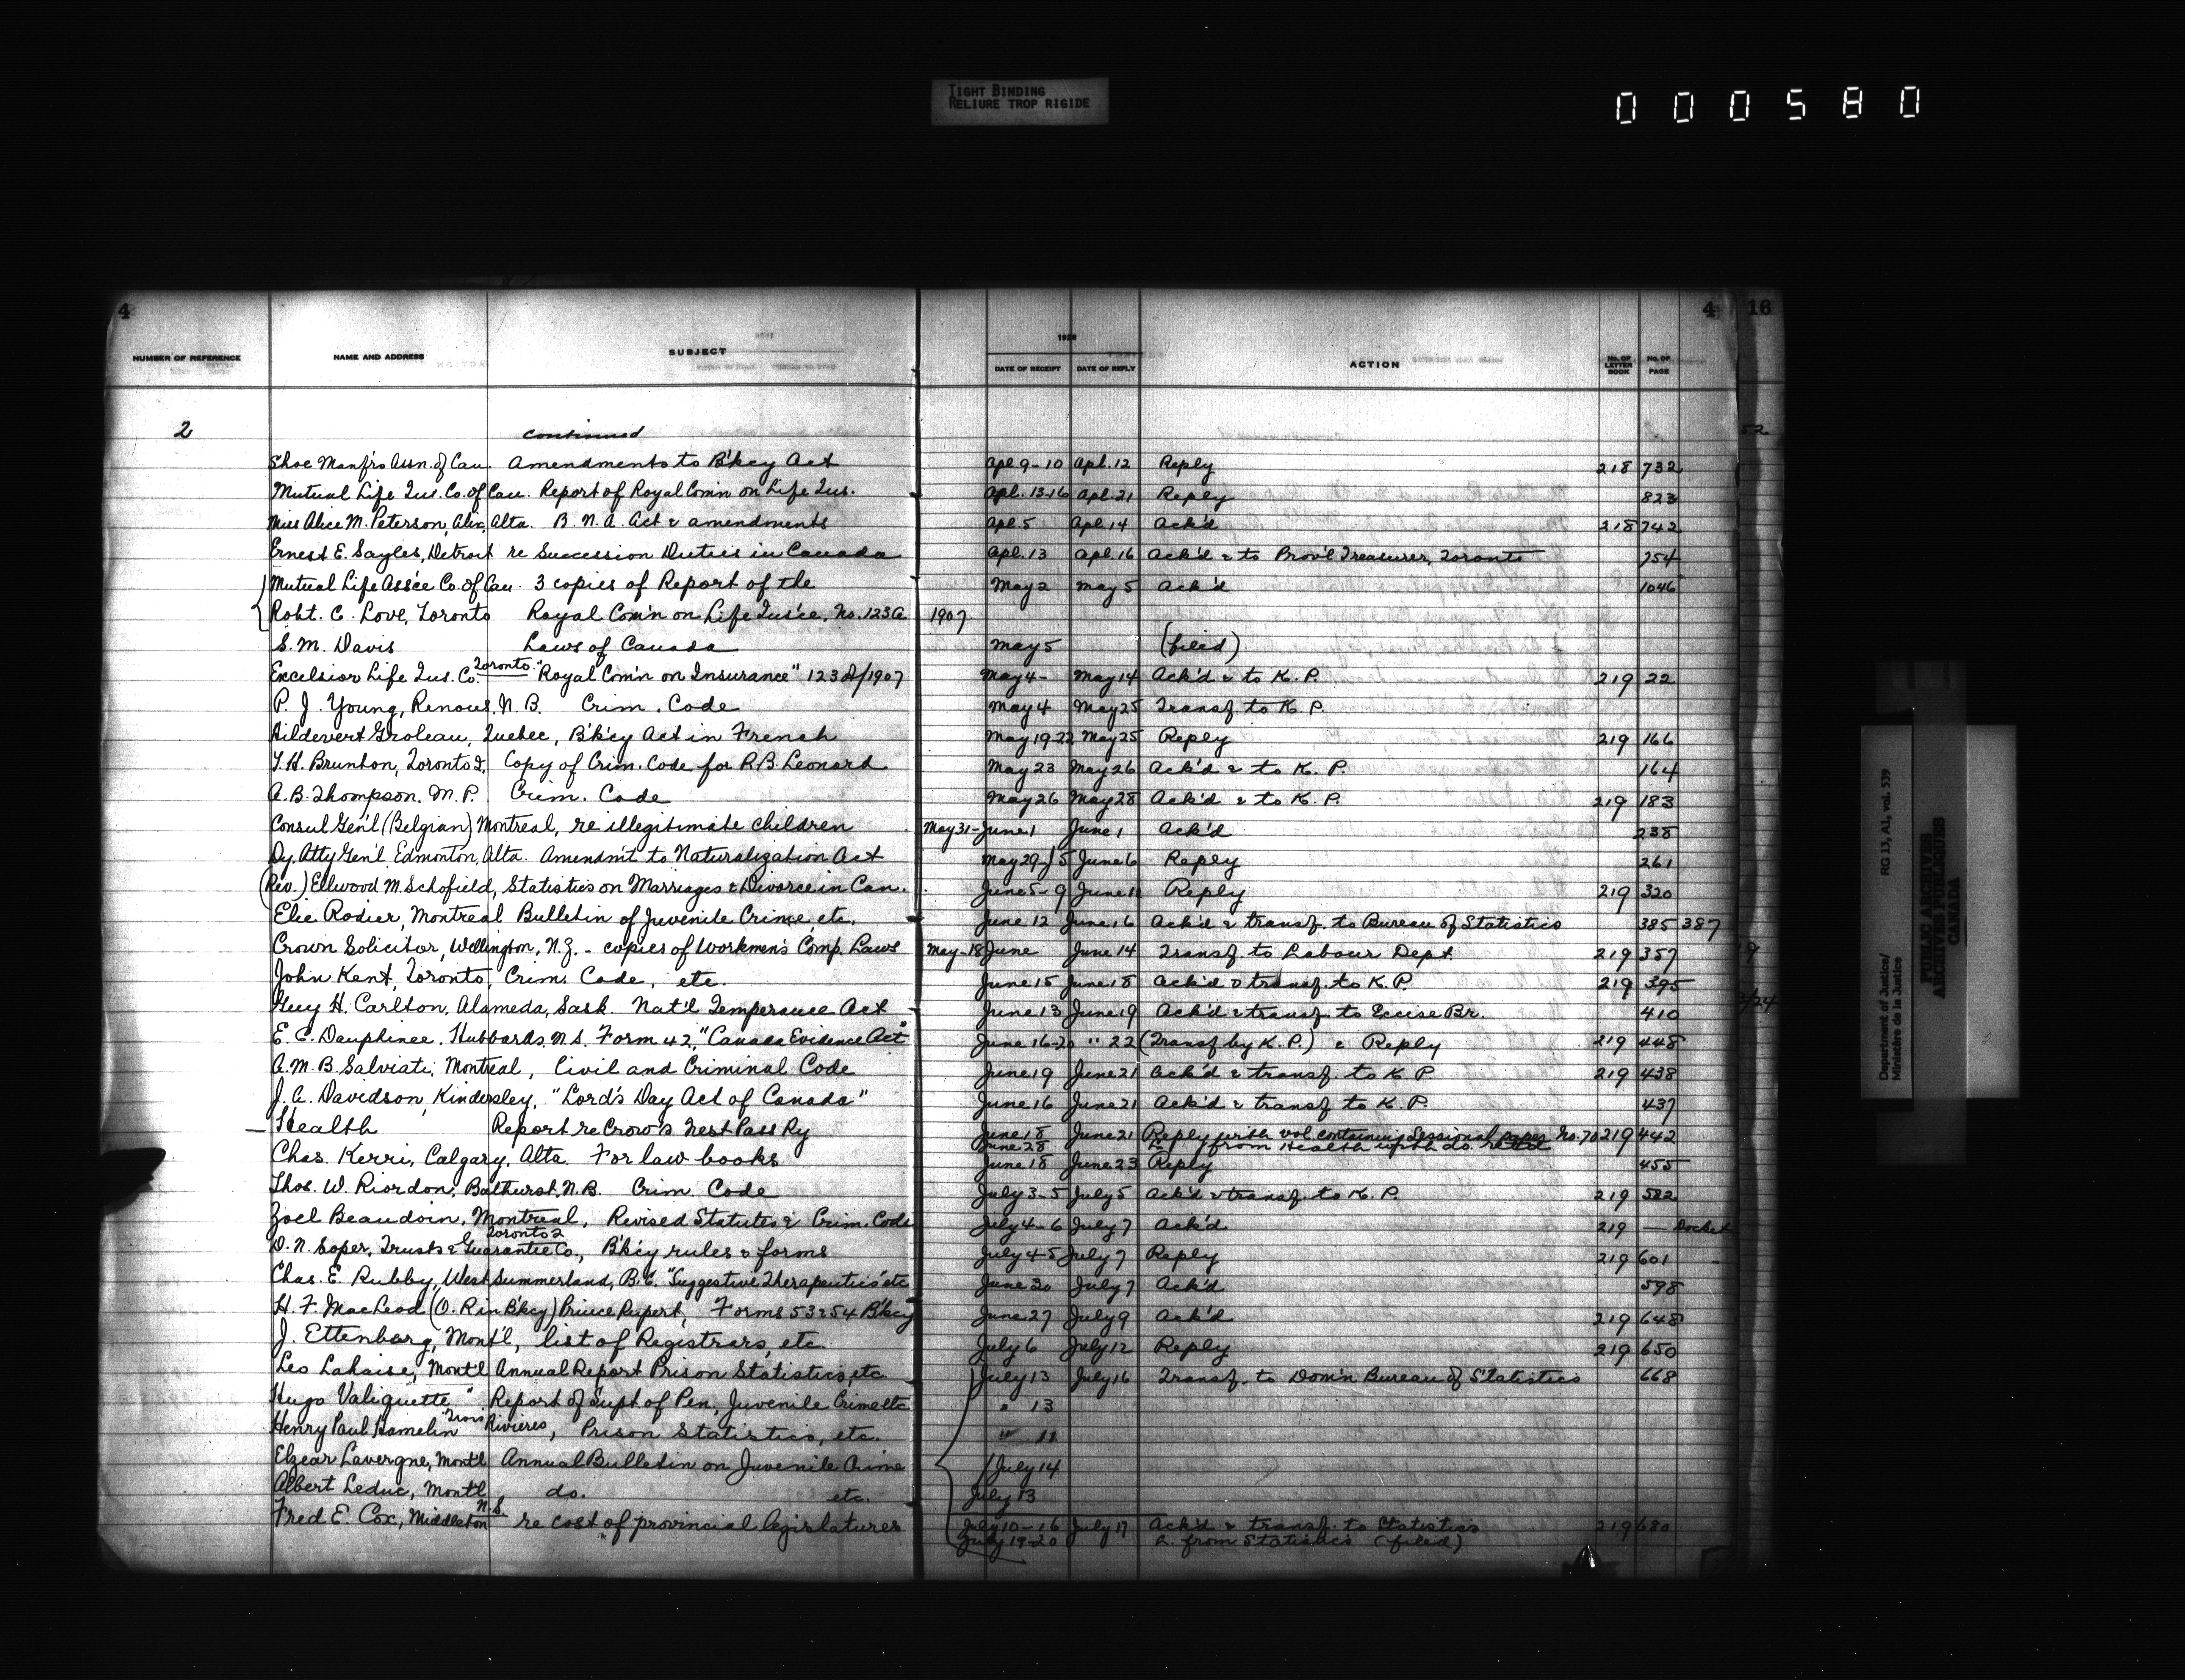 TIGHT BINDING
RELIURE TROP RIGIDE
000580
4 4 16
NUMBER OF REFERENCE NAME AND ADDRESS SUBJECT 1928 DATE OF RECEIPT DATE OF REPLY ACTION No. OF LETTER BOOK No. OF PAGE
2 continued 52
Shoe Manfrs Assn. of Can. Amendments to B'kcy Act Apl. 9-10 Apl. 12 Reply 218 732
Mutual Life Ins. Co. of Can. Report of Royal Com'n on Life Ins. Apl. 13-16 Apl. 21 Reply 823
Miss Alice M. Peterson, Alix, Alta. B. N. A. Act & amendments Apl. 5 Apl. 14 Ack'd 218 742
Ernest E. Sayles, Detroit re Succession Duties in Canada Apl. 13 Apl. 16 Ack'd & to Prov'l Treasurer, Toronto 754
Mutual Life Ass'ce Co. of Can. 3 copies of Report of the May 2 May 5 Ack'd 1046
Robt. C. Love, Toronto Royal Com'n on Life Ins'ce, No. 123A 1907
S. M. Davis Laws of Canada May 5 (filed)
Excelsior Life Ins. Co. Toronto. "Royal Com'n on Insurance" 123A/1907 May 4- May 14 Ack'd & to K. P. 219 22
P. J. Young, Renous, N. B. Crim. Code May 4 May 25 Transf. to K. P.
Hildevert Groleau, Quebec, B'k'cy Act in French May 19-22 May 25 Reply 219 166
T. H. Brunton, Toronto 2, Copy of Crim. Code for R. B. Leonard May 23 May 26 Ack'd & to K. P. 164
A. B. Thompson. M. P. Crim. Code May 26 May 28 Ack'd & to K. P. 219 183
Consul Gen'l (Belgian) Montreal, re illegitimate children May 31- June 1 June 1 Ack'd 238
Dy. Atty Gen'l, Edmonton, Alta. Amendm't to Naturalization Act May 29-J 5 June 6 Reply 261
(Rev.) Ellwood M. Schofield, Statistics on Marriages & Divorce in Can. June 5-9 June 11 Reply 219 320
Elie Rodier, Montreal Bulletin of Juvenile Crime, etc. June 12 June 16 Ack'd & transf. to Bureau of Statistics 385 387
Crown Solicitor, Wellington, N. Z. - copies of Workmen's Comp. Laws May-18 June June 14 Transf. to Labour Dept. 219 357
John Kent, Toronto, Crim. Code, etc. June 15 June 18 Ack'd & transf. to K. P. 219 395
Guy H. Carlton, Alameda, Sask. Nat'l Temperance Act June 13 June 19 Ack'd & transf. to Excise Br. 410
E. C. Dauphinee, Hubbards, N. S. Form 42, "Canada Evidence Act" June 16-20 " 22 (Transf by K. P.) & Reply 219 448
A. M. B. Salviati, Montreal, Civil and Criminal Code June 19 June 21 Ack'd & transf. to K. P. 219 438
J. A. Davidson, Kindersley, "Lord's Day Act of Canada" June 16 June 21 Ack'd & transf to K. P. 437
Health Report re Crow's Nest Pass Ry June 18 June 21 Reply with vol. containing Sessional paper No. 70 219 442
June 28 L. from Health with do. ret'd
Chas. Kerri, Calgary, Alta. For law books June 18 June 23 Reply 455
Thos. W. Riordon, Bathurst, N. B. Crim. Code July 3-5 July 5 Ack'd & transf. to K. P. 219 582
Zoel Beaudoin, Montreal, Revised Statutes & Crim. Code July 4-6 July 7 Ack'd 219 — Docket
D. N. Soper, Trusts & Guarantee Co., Toronto 2 B'k'cy rules & forms July 4-5 July 7 Reply 219 601
Chas. E. Rubby, West Summerland, B. C. "Suggestive Therapeutics" etc June 30 July 7 Ack'd 598
H. F. MacLeod (O. R in B'kcy) Prince Rupert, Forms 53 & 54 B'kcy June 27 July 9 Ack'd 219 648
J. Ettenberg, Mont'l, list of Registrars, etc. July 6 July 12 Reply 219 650
Leo Lahaise, Mont'l Annual Report Prison Statistics, etc July 13 July 16 Transf. to Dom'n Bureau of Statistics 668
Hugo Valiquette " Report of Supt of Pen, Juvenile Crime etc " 13
Henry Paul Hamelin Trois Rivieres, Prison Statistics, etc. " 11
Elzear Lavergne, Mont'l Annual Bulletin on Juvenile Crime July 14
Albert Leduc, Mont'l do. etc. July 13
Fred E. Cox, Middleton N. S. re cost of provincial legislatures July 10-16 July 17 Ack'd & transf. to Statistics 219 680
July 19-20 L. from Statistics (filed)
Department of Justice/ RG 13, A1, vol. 539
Ministère de la Justice
PUBLIC ARCHIVES
ARCHIVES PUBLIQUES
CANADA